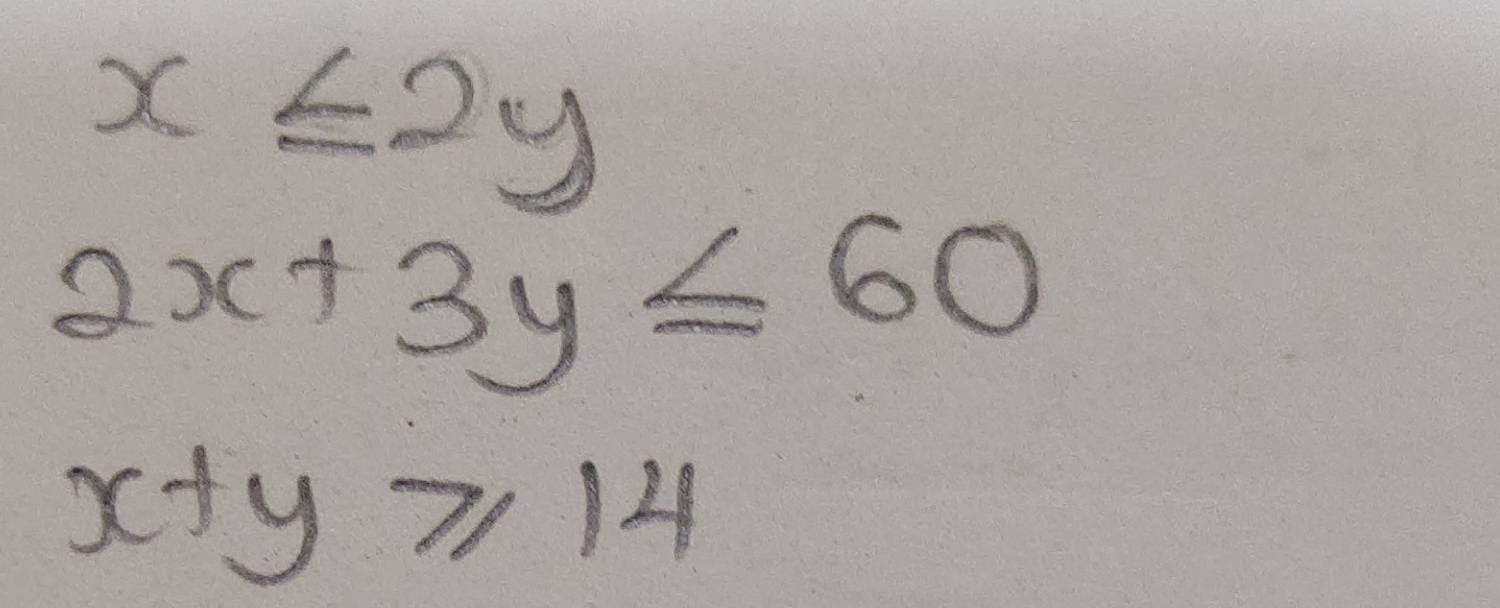 x ≤ 2y
2x + 3y ≤ 60
x + y ⩾ 14